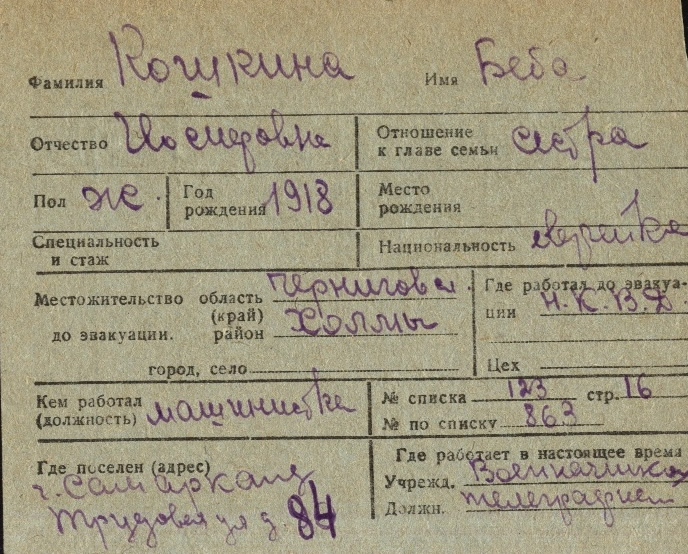 Фамилия Кошкина Имя Беба
Отчество Иосифовна Отношение к главе семьи сестра
Пол Ж. Год рождения 1918 Место рождения
Специальность и стаж Национальность еврейка
Местожительство до эвакуации. область (край) Чернигова
район Холмы
город, село
Где работал до эвакуации Н.К.В.Д.
Цех
Кем работал (должность) машинистка
№ списка 123 стр. 16
№ по списку 863
Где поселен (адрес)
г. Самарканд
Трудовая ул д. 84
Где работает в настоящее время
Учрежд.
Должн. телеграфист